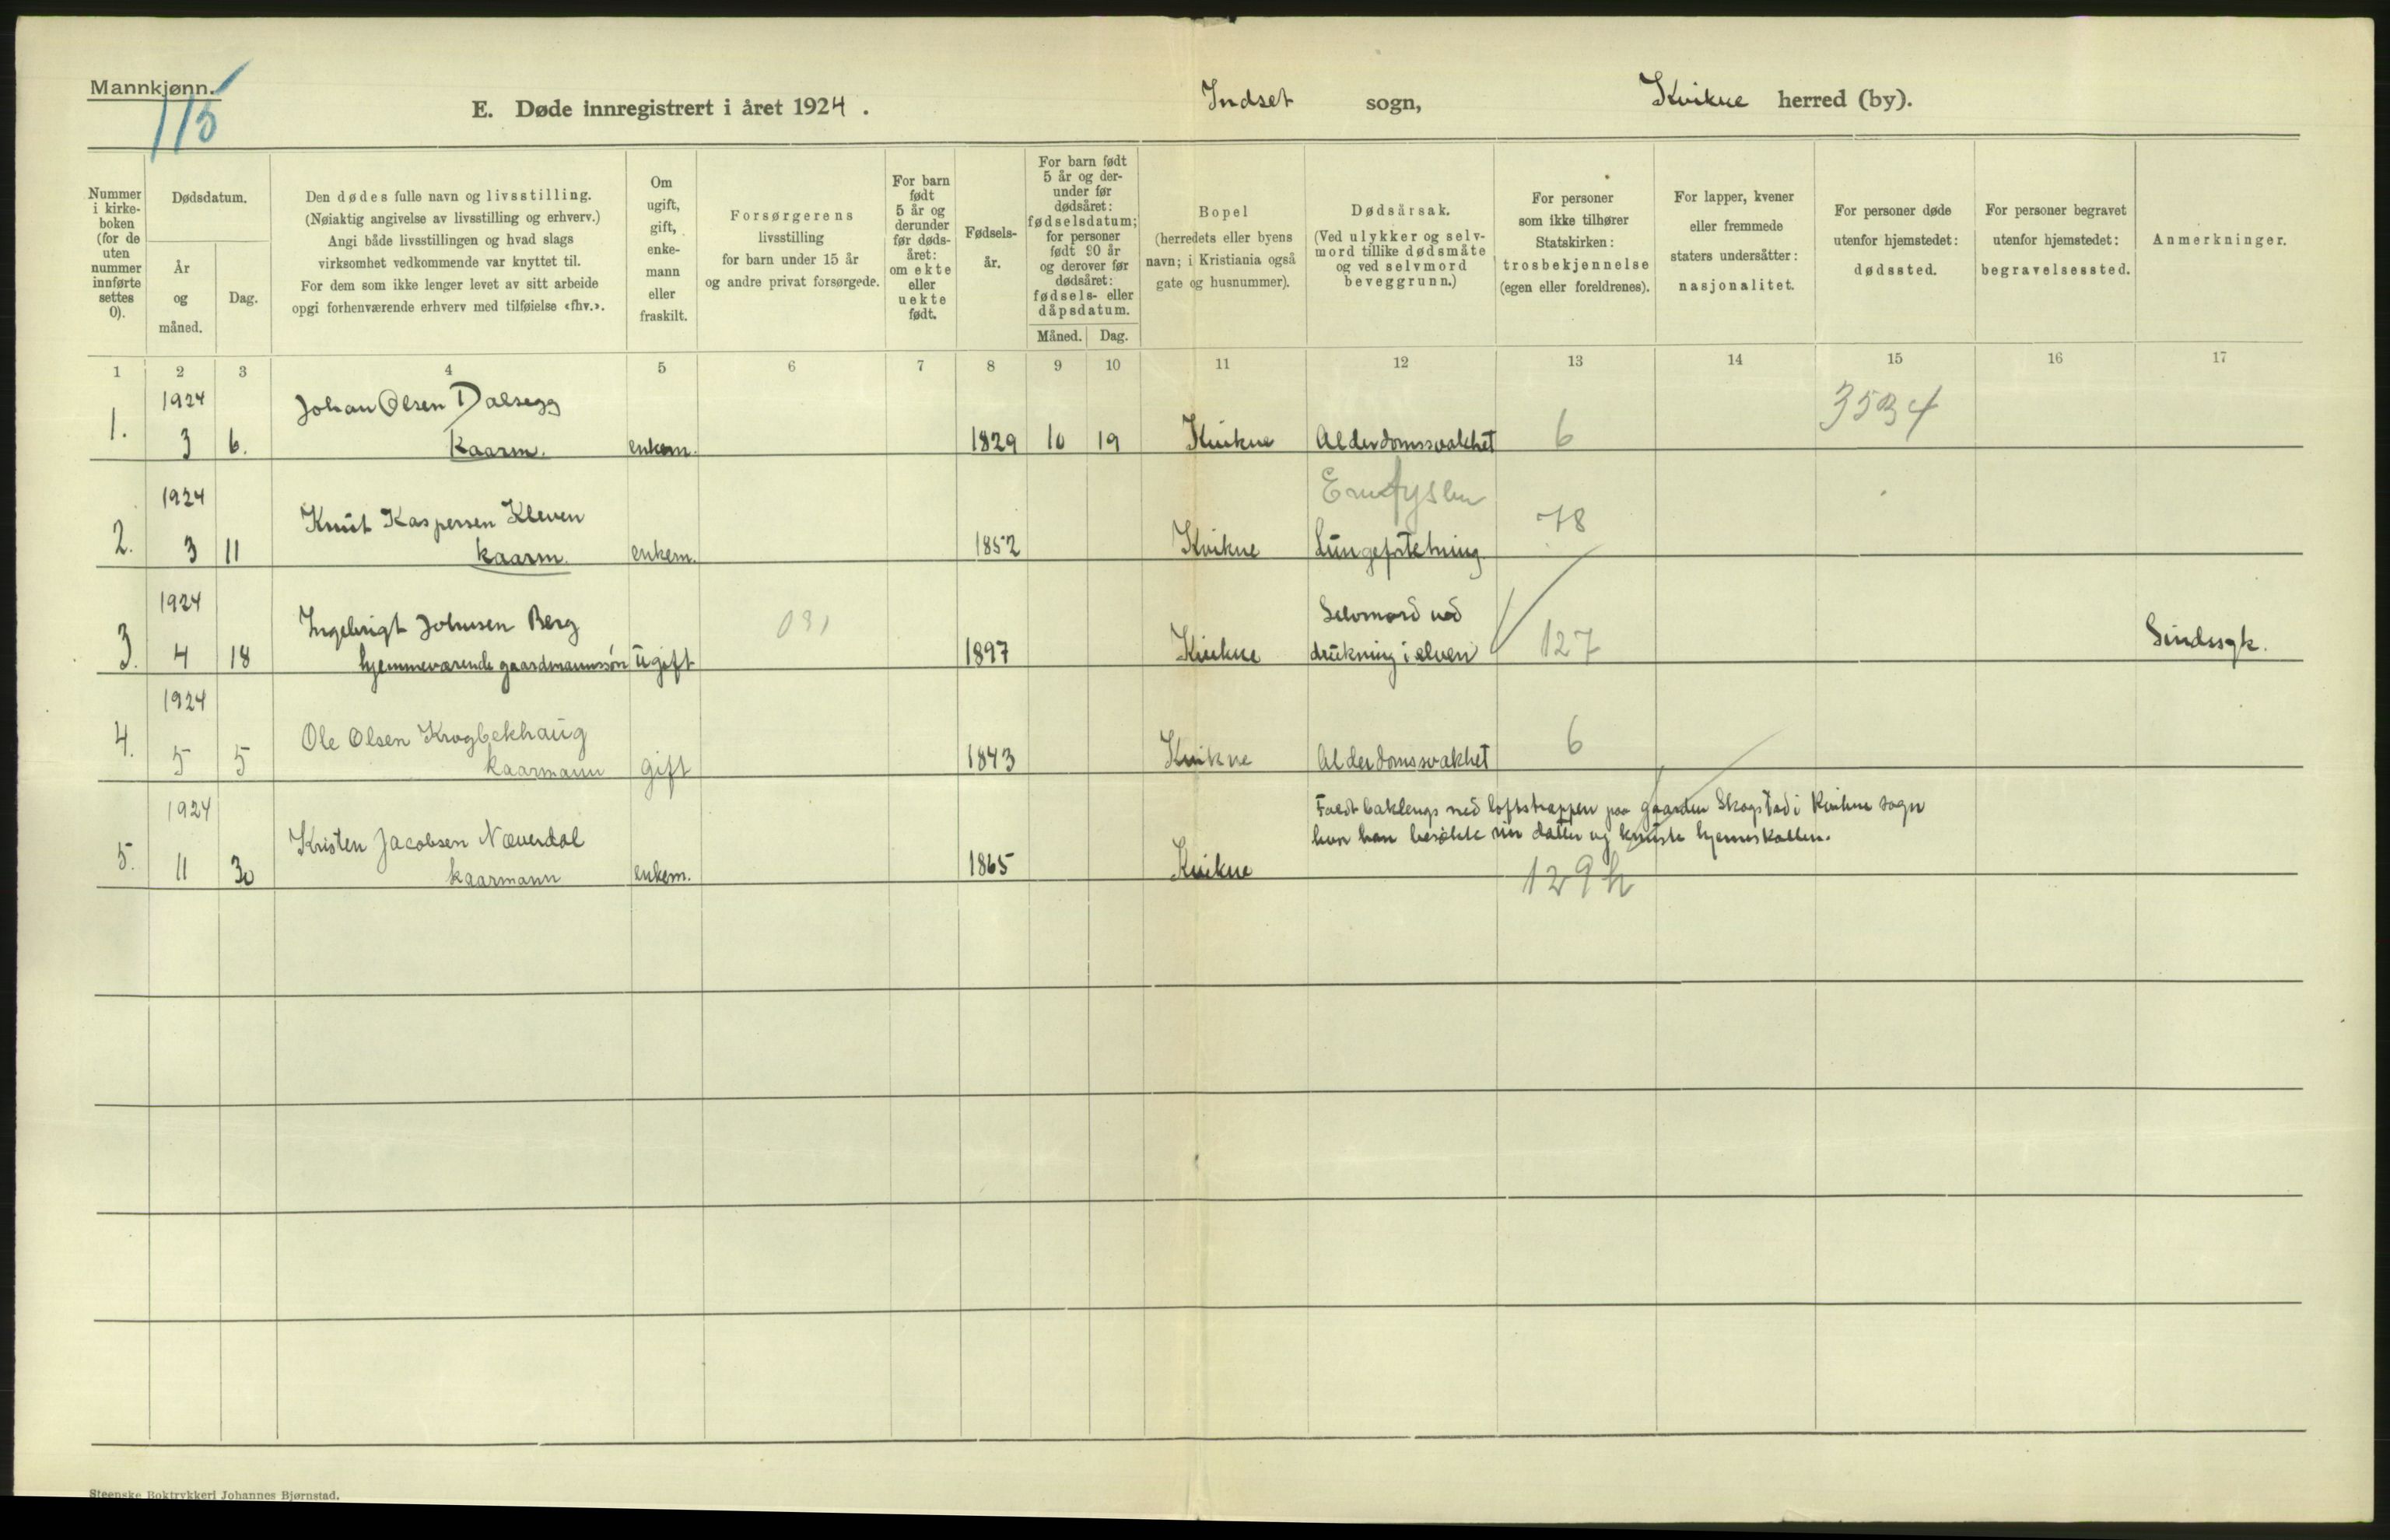 Mannkjønn.
115
E. Døde innregistrert i året 1924.
Indset sogn,
Kvikne herred (by).
Nummer i kirke-boken (for de uten nummer innførte settes 0).
Dødsdatum.
År og måned.
Dag.
Den dødes fulle navn og livsstilling.
(Nøiaktig angivelse av livsstilling og erhverv.)
Angi både livsstillingen og hvad slags
virksomhet vedkommende var knyttet til.
For dem som ikke lenger levet av sitt arbeide
opgi forhenværende erhverv med tilføielse «fhv.».
Om ugift, gift, enke-mann eller fraskilt.
Forsørgerens
livsstilling
for barn under 15 år
og andre privat forsørgede.
For barn født 5 år og derunder før døds-året: om ekte eller uekte født.
Fødsels-år.
For barn født 5 år og der-under før dødsåret: fødselsdatum; for personer født 90 år og derover før dødsåret: fødsels- eller dåpsdatum.
Måned. Dag.
Bopel
(herredets eller byens
navn; i Kristiania også
gate og husnummer).
Dødsårsak.
(Ved ulykker og selv-
mord tillike dødsmåte
og ved selvmord
beveggrunn.)
For personer
som ikke tilhører
Statskirken:
trosbekjennelse
(egen eller foreldrenes).
For lapper, kvener
eller fremmede
staters undersåtter:
nasjonalitet.
For personer døde
utenfor hjemstedet:
dødssted.
For personer begravet
utenfor hjemstedet:
begravelsessted.
Anmerkninger.
1 2 3 4 5 6 7 8 9 10 11 12 13 14 15 16 17
1924 Johan Olsen Dalsegg 3534
1. 3 6. kaarm. enkem. 1829 10 19 Kvikne Alderdomssvakhet 6
1924 Knut Kaspersen Kleven Emfysem
2. 3 11 kaarm. enkem. 1852 Kvikne Lungefortetning 78
1924 Ingebrigt Johnsen Berg 031 Selvmord ved
3. 4 18 hjemmeværende gaardmannssøn ugift 1897 Kvikne drukning i elven 127 Sindssyk.
1924 Ole Olsen Krogbekhaug
4. 5 5 kaarmann gift 1843 Kvikne Alderdomssvakhet 6
1924 Faldt baklengs ned loftstrappen paa gaarden Skogstad i Kvikne sogn
Kristen Jacobsen Næverdal hvor han besøkte sin datter og knuste hjerneskallen.
5. 11 30 kaarmann enkem. 1865 Kvikne 129 h
Steenske Boktrykkeri Johannes Bjørnstad.